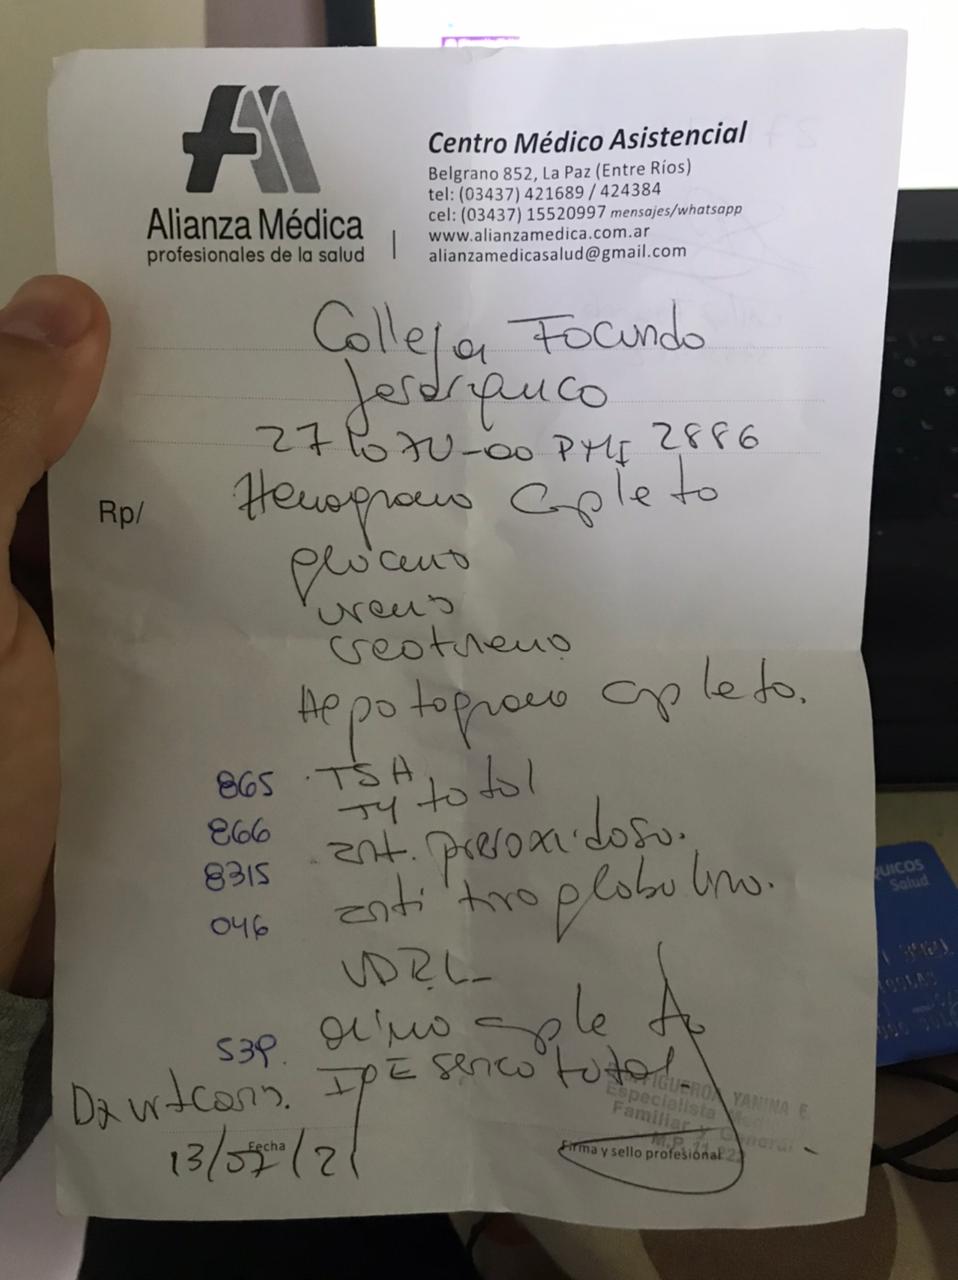 Alianza Médica
profesionales de la salud
Centro Médico Asistencial
Belgrano 852, La Paz (Entre Ríos)
tel: (03437) 421689 / 424384
cel: (03437) 15520997 mensajes/whatsapp
www.alianzamedica.com.ar
alianzamedicasalud@gmail.com
Facundo
Jerárquico
PMI 2886
Rp/
Hemograma completo
glucemia
uremia
creatinina
Hepatograma completo.
865 TSH
866 T4 total
8315 ant. peroxidasa.
046 anti tiroglobulina.
VDRL
orina completa
539. IgE serica total
Fecha
13/07/21
FIGUEROA YANINA E.
Especialista
Familiar y General
Firma y sello profesional
QUICOS
Salud